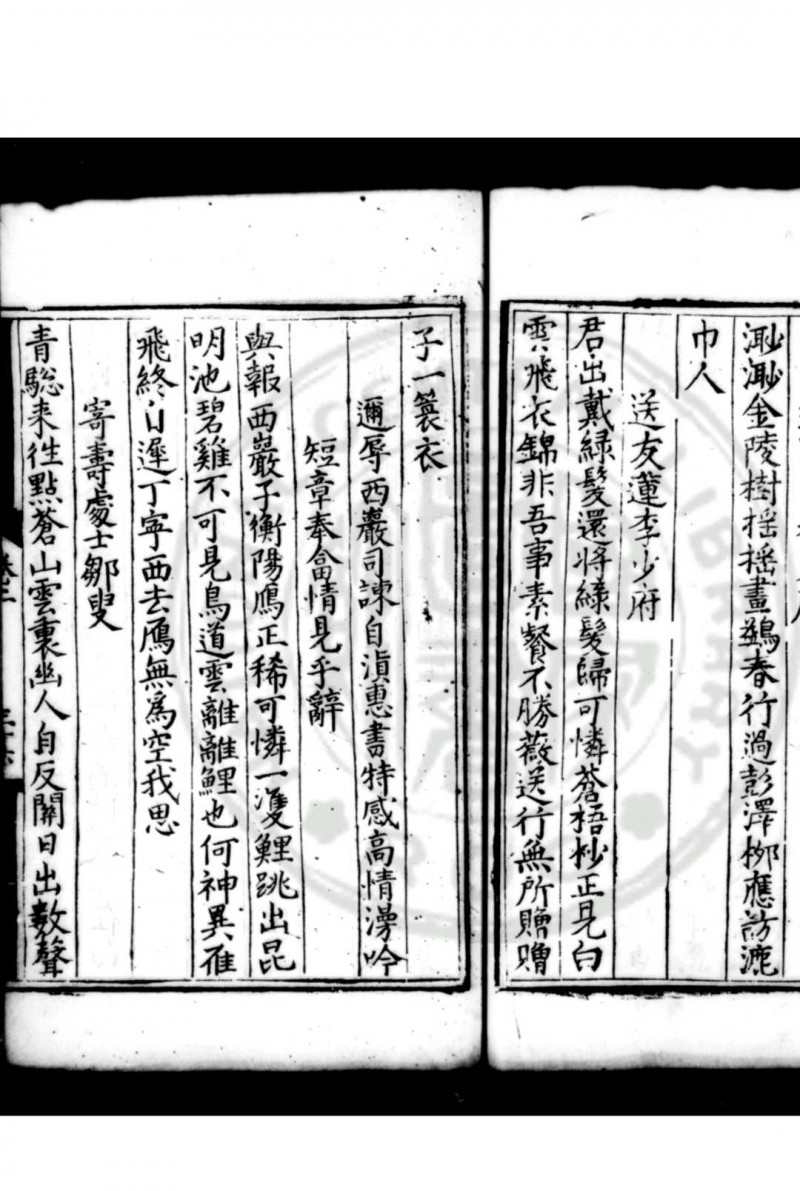 渺渺金陵樹揺揺畫鷁春行過彭澤栁應訪漉
巾人
送友蓮李少府
君出戴緑髮還將緑髮歸可憐蒼梧杪正見白
雲飛衣錦非吾事素餐不勝薇送行無所贈贈
子一蓑衣
邇辱西巖司諫自滇惠書特感高情漫吟
短章奉畣情見乎辭
與報西巖子衡陽鴈正稀可憐一雙鯉跳出昆
明池碧雞不可見鳥道雲離離鯉也何神異雁
飛終日遲丁寧西去鴈無為空我思
寄壽處士鄒叟
青驄来徃點蒼山雲裏幽人自反關日出數聲